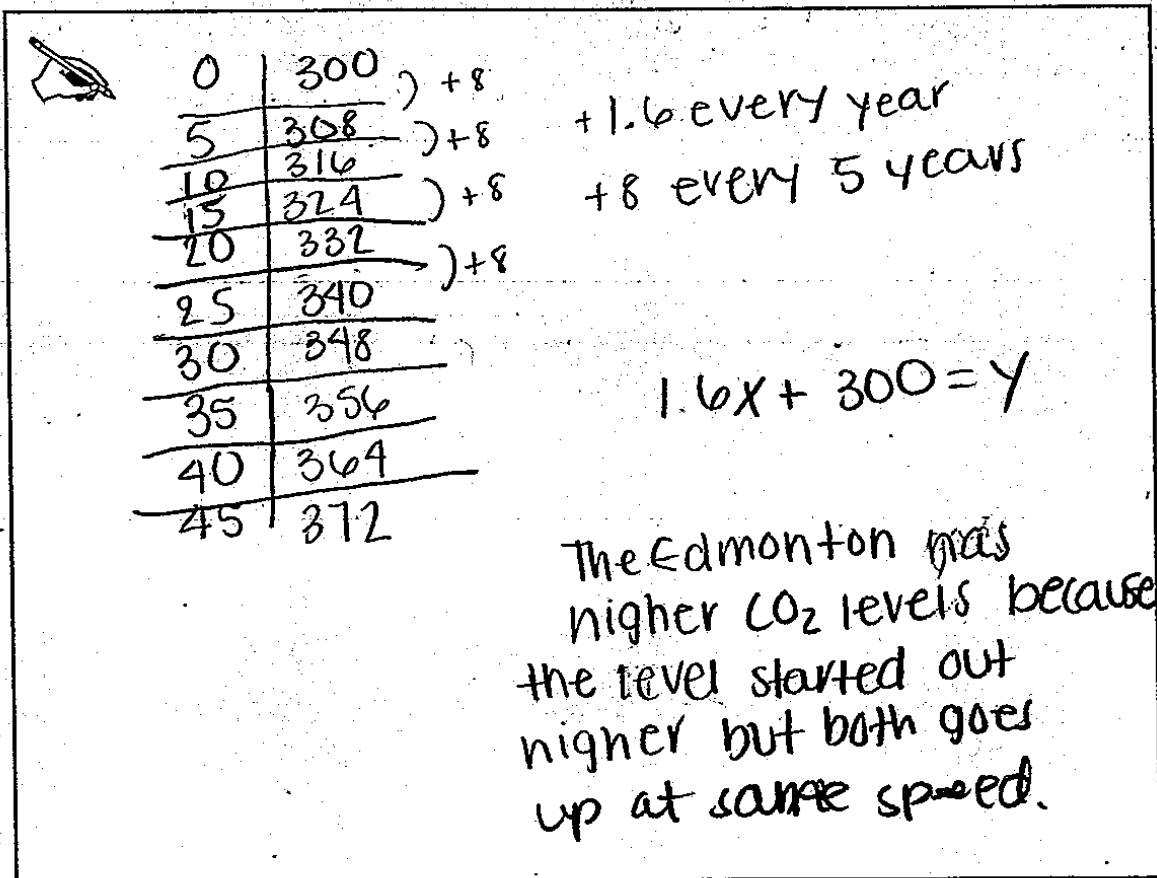 0 300
+8
5 308
+8
10 316
15 324
+8
20 332
+8
25 340
30 348
35 356
40 364
45 372
+1.6 every year
+8 every 5 years
1.6x + 300 = y
The Edmonton has
higher CO₂ levels because
the level started out
higher but both goes
up at same speed.